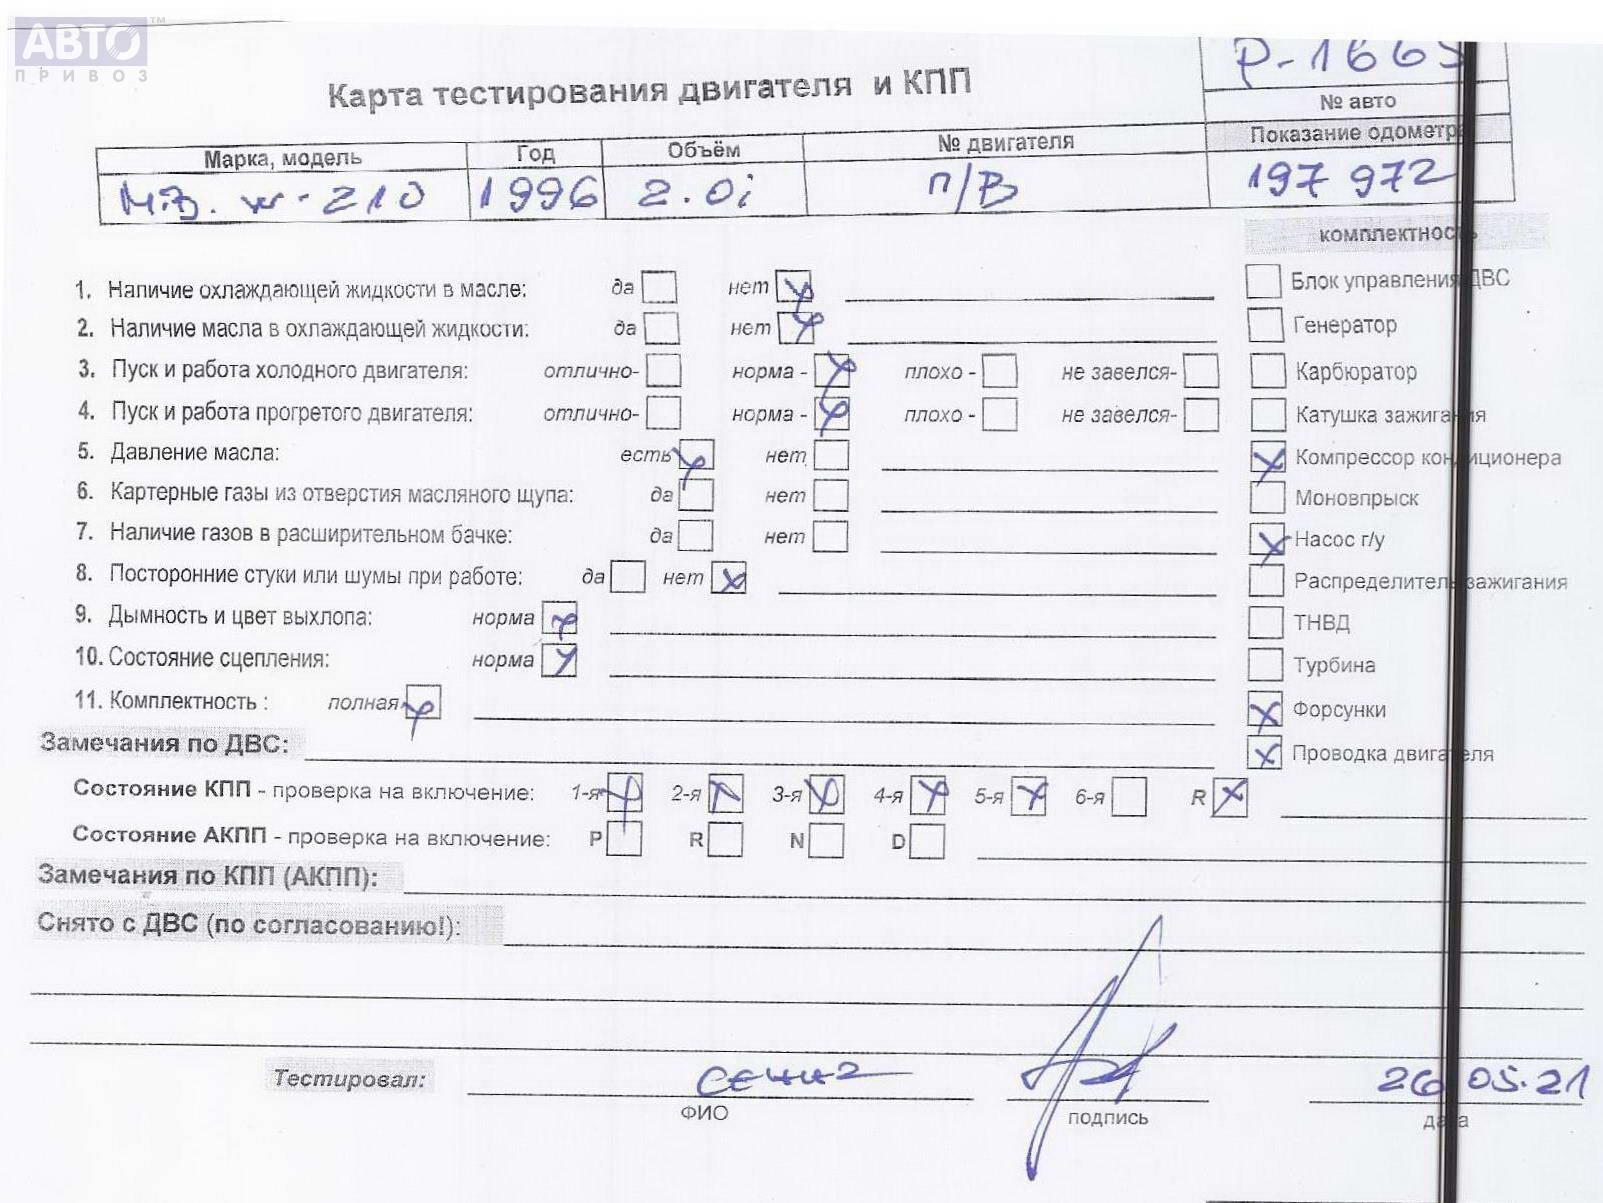 АВТО™
ПРИВОЗ
Р-1665
Карта тестирования двигателя и КПП
№ авто
Марка, модель Год Объём № двигателя Показание одометра
М.В. w-210 1996 2.0i п/в 197 972
комплектность
1. Наличие охлаждающей жидкости в масле: да нет
Блок управления ДВС
2. Наличие масла в охлаждающей жидкости: да нет
Генератор
3. Пуск и работа холодного двигателя: отлично- норма - плохо - не завелся-
Карбюратор
4. Пуск и работа прогретого двигателя: отлично- норма - плохо - не завелся-
Катушка зажигания
5. Давление масла: есть нет
Компрессор кондиционера
6. Картерные газы из отверстия масляного щупа: да нет
Моновпрыск
7. Наличие газов в расширительном бачке: да нет
Насос г/у
8. Посторонние стуки или шумы при работе: да нет
Распределитель зажигания
9. Дымность и цвет выхлопа: норма
ТНВД
10. Состояние сцепления: норма
Турбина
11. Комплектность : полная
Форсунки
Замечания по ДВС:
Проводка двигателя
Состояние КПП - проверка на включение: 1-я 2-я 3-я 4-я 5-я 6-я R
Состояние АКПП - проверка на включение: P R N D
Замечания по КПП (АКПП):
Снято с ДВС (по согласованию!):
Тестировал: 26.05.21
ФИО подпись дата